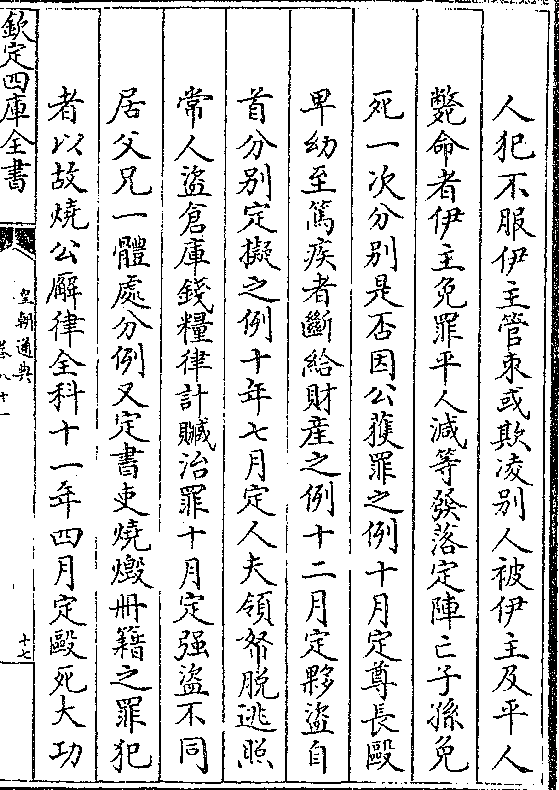 人犯不服伊主管束或欺凌别人被伊主及平人
斃命者伊主免罪平人減等發落定陣亡子孫免
死一次分别是否因公獲罪之例十月定尊長毆
卑幼至篤疾者斷給財産之例十二月定夥盜自
首分别定擬之例十年七月定人夫領帑脱逃照
常人盜倉庫錢糧律計贓治罪十月定强盜不同
居父兄一體處分例又定書吏燒燬冊籍之罪犯
者以故燒公廨律全科十一年四月定毆死大功
欽定四庫全書
皇朝通典
卷八十一
十七